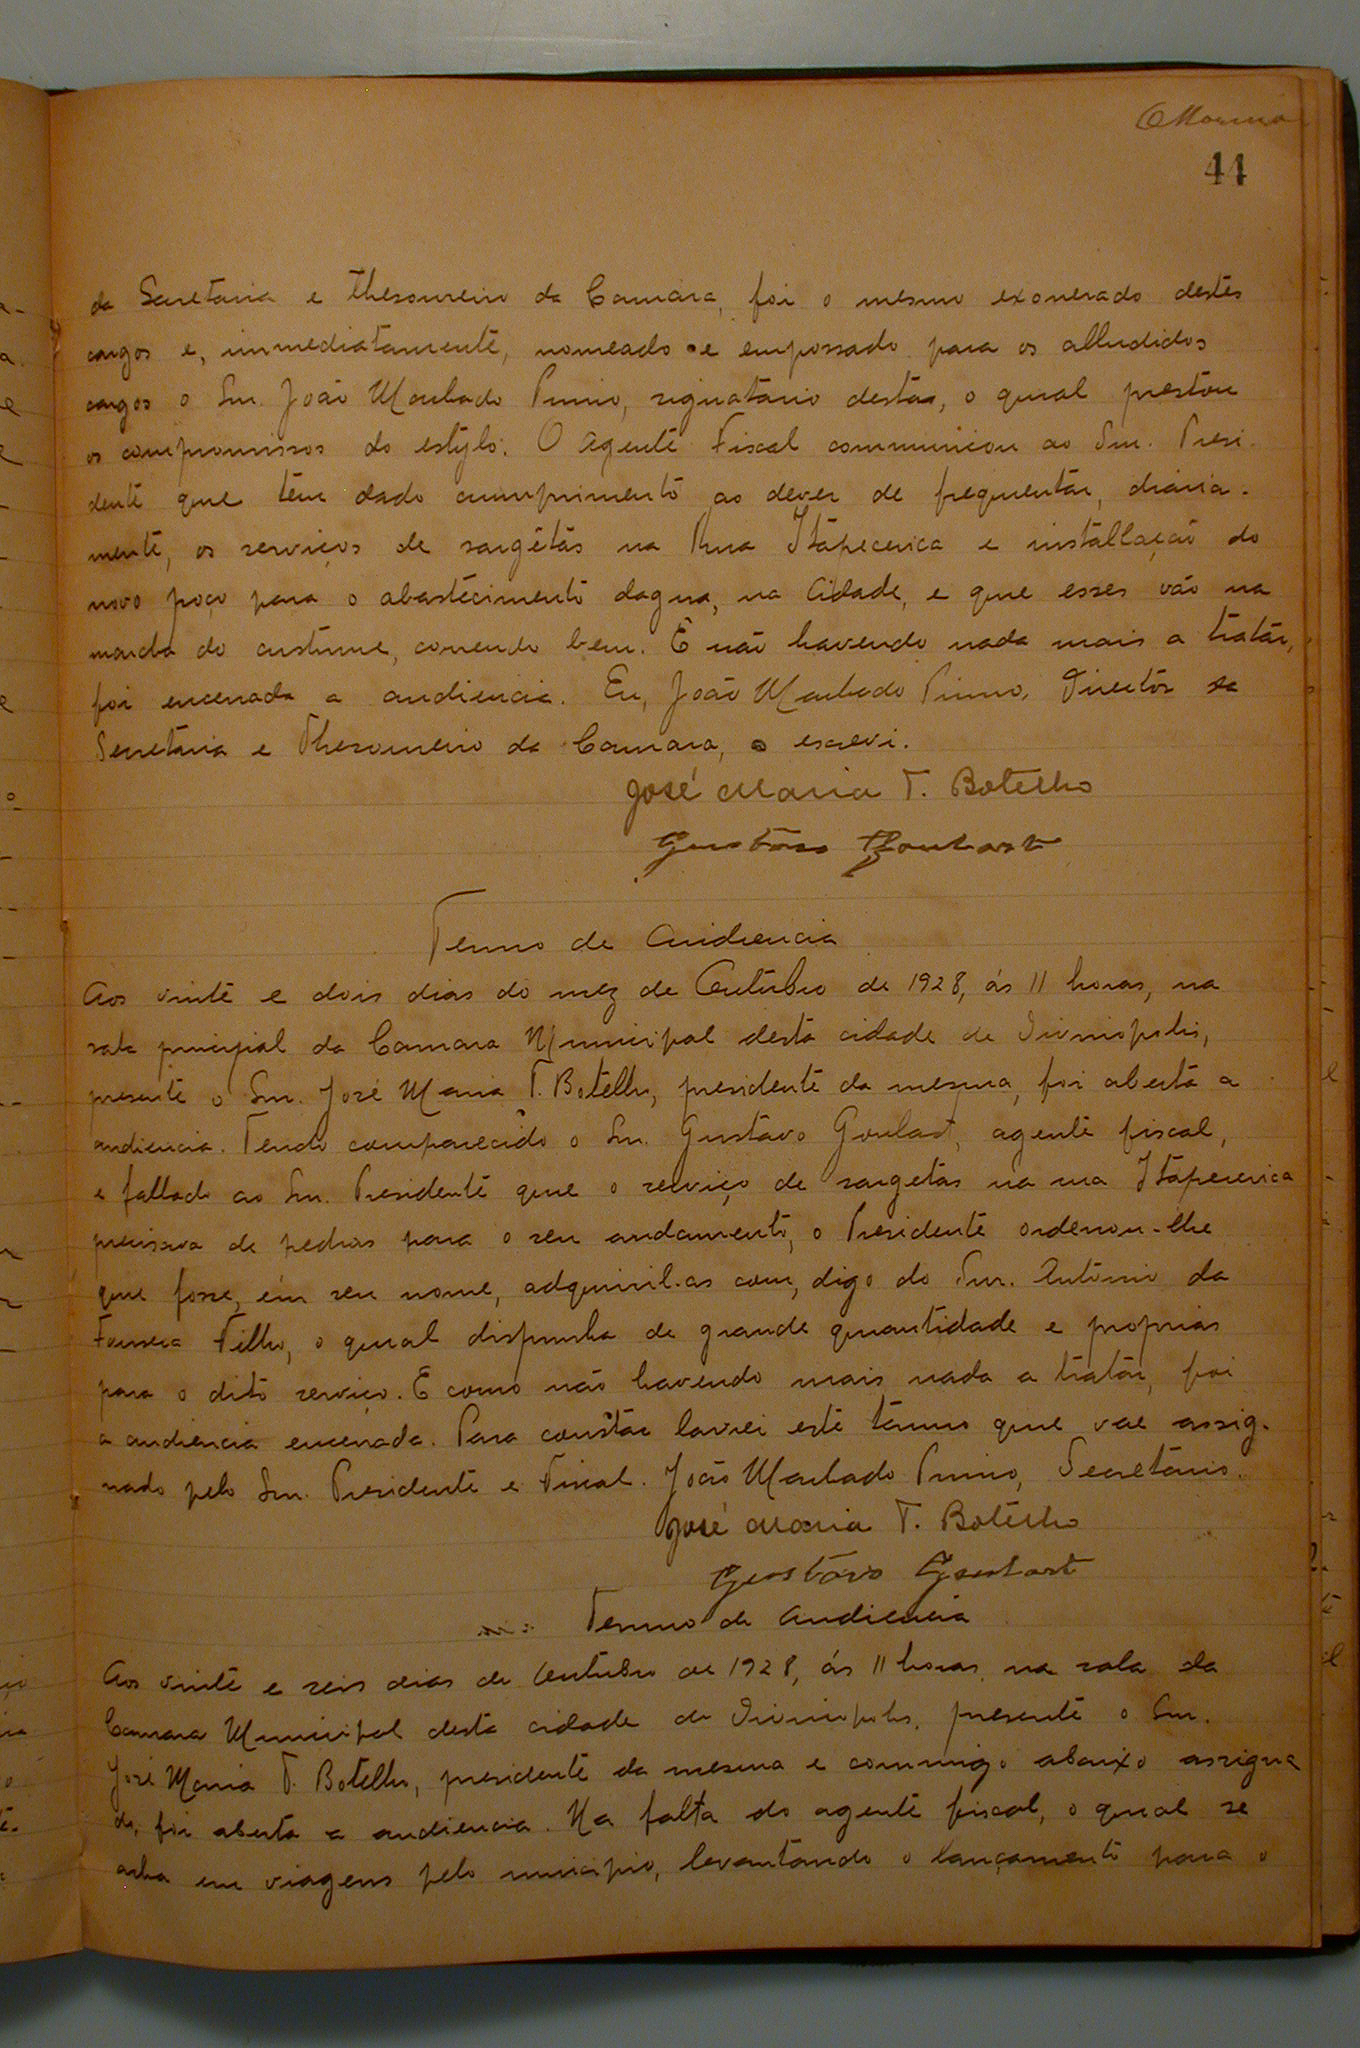 44
da Secretaria e thesoureiro da Camara, foi o mesmo exonerado destes
cargos e, immediatamente, nomeado e empossado para os alludidos
cargos o Snr. João Machado Primo, signatario desta, o qual prestou
os compromissos do estylo. O Agente Fiscal communicou ao Snr. Presi-
dente que tem dado cumprimento ao dever de frequentar, diaria-
mente, os serviços de sargétas na Rua Itapecerica e installação do
novo poço para o abastecimento dagua, na Cidade, e que esses vão na
marcha do custume, correndo bem. E não havendo nada mais a tratár,
foi encerrada a audiencia. Eu, João Machado Primo, Directôr da
Secretaria e Thesoureiro da Camara, o escrevi.
José Maria T. Botelho
Gustavo Goulart
Termo de Audiencia
Aos vinte e dois dias do mez de Outubro de 1928, ás 11 horas, na
sala principal da Camara Municipal desta cidade de Divinopolis,
presente o Snr. José Maria T. Botelho, presidente da mesma, foi aberta a
audiencia. Tendo comparecido o Snr. Gustavo Goulart, agente fiscal,
e fallado ao Snr. Presidente que o serviço de sargetas na rua Itapecerica
precisava de pedras para o seu andamento, o Presidente ordenou-lhe
que fosse, em seu nome, adquiril-as com, digo do Snr. Antonio da
Fonseca Filho, o qual dispunha de grande quantidade e proprias
para o dito serviço. E como não havendo mais nada a tratar, foi
a audiencia encerrada. Para constar lavrei este termo que vae assig-
nado pelo Snr. Presidente e Fiscal. João Machado Primo, Secretario.
José Maria T. Botelho
Gustavo Goulart
Termo de Audiencia
Aos vinte e seis dias de Outubro de 1928, ás 11 horas, na sala da
Camara Municipal desta cidade de Divinopolis, presente o Snr.
José Maria T. Botelho, presidente da mesma e commigo abaixo assigna
do, foi aberta a audiencia. Na falta do agente fiscal, o qual se
acha em viagens pelo municipio, levantando o lançamento para o